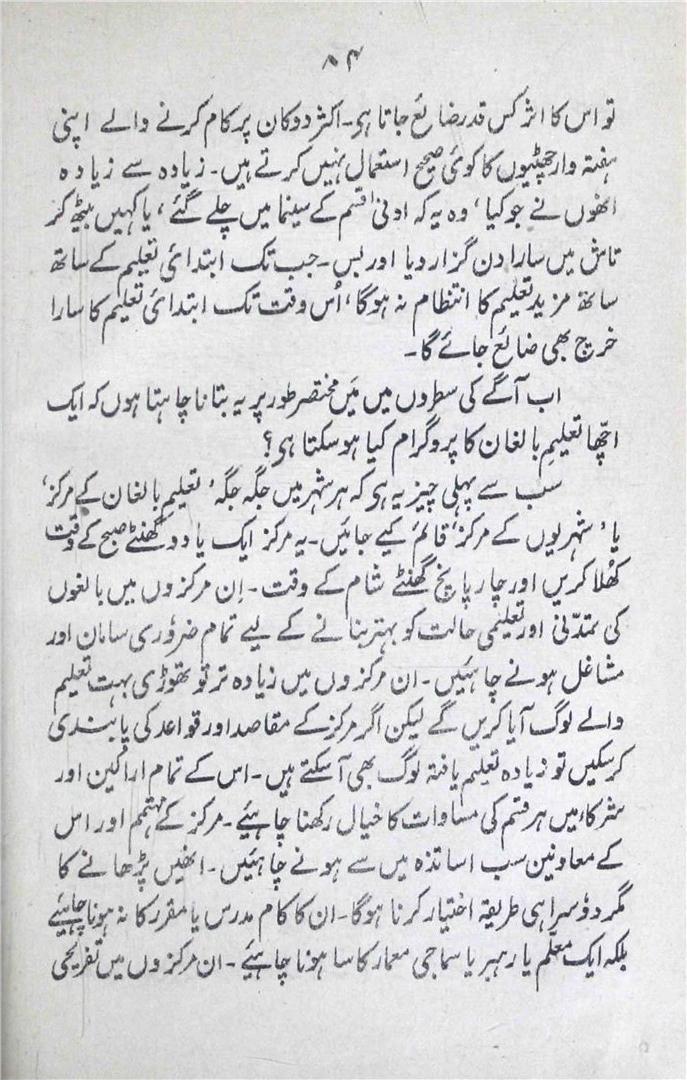 ۸۴
تو اس کا اثر کس قدر ضائع جاتا ہی۔ اکثر دوکان پر کام کرنے والے اپنی
ہفتہ وار چھٹیوں کا کوئی صحیح استعمال نہیں کرتے ہیں۔ زیادہ سے زیادہ
انھوں نے جو کیا، وہ یہ کہ ادنیٰ قسم کے سینما میں چلے گئے، یا کہیں بیٹھ کر
تاش میں سارا دن گزار دیا اور بس۔ جب تک ابتدائی تعلیم کے ساتھ
ساتھ مزید تعلیم کا انتظام نہ ہوگا، اُس وقت تک ابتدائی تعلیم کا سارا
خرچ بھی ضائع جائے گا۔
اب آگے کی سطروں میں مَیں مختصر طور پر یہ بتانا چاہتا ہوں کہ ایک
اچھا تعلیمِ بالغان کا پروگرام کیا ہو سکتا ہی؟
سب سے پہلی چیز یہ ہی کہ ہر شہر میں جگہ جگہ ’تعلیم بالغان کے مرکز‘
یا ’شہریوں کے مرکز‘ قائم کیے جائیں۔ یہ مرکز ایک یا دو گھنٹے صبح کے وقت
کھُلا کریں اور چار پانچ گھنٹے شام کے وقت۔ اِن مرکزوں میں بالغوں
کی تمدّنی اور تعلیمی حالت کو بہتر بنانے کے لیے تمام ضروری سامان اور
مشاغل ہونے چاہئیں۔ ان مرکزوں میں زیادہ تر تو تھوڑی بہت تعلیم
والے لوگ آیا کریں گے لیکن اگر مرکز کے مقاصد اور قواعد کی پابندی
کر سکیں تو زیادہ تعلیم یافتہ لوگ بھی آ سکتے ہیں۔ اس کے تمام اراکین اور
شرکاء میں ہر قسم کی مساوات کا خیال رکھنا چاہیئے۔ مرکز کے مہتمم اور اس
کے معاونین سب اساتذہ میں سے ہونے چاہئیں۔ انھیں پڑھانے کا
مگر دوسرا ہی طریقہ اختیار کرنا ہوگا۔ ان کا کام مدرس یا مقرر کا نہ ہونا چاہیئے
بلکہ ایک معلّم یا رہبر یا سماجی معمار کا سا ہونا چاہیئے۔ ان مرکزوں میں تفریحی